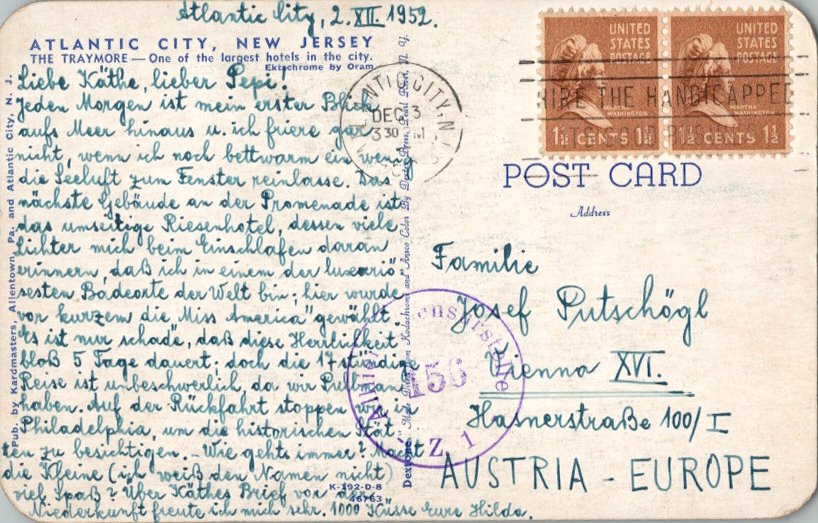 Atlantic City, 2. XII. 1952.
ATLANTIC CITY, NEW JERSEY
THE TRAYMORE — One of the largest hotels in the city.
Ektachrome by Oram
Liebe Käthe, lieber Pepi!
Jeden Morgen ist mein erster Blick
aufs Meer hinaus u. ich friere gar
nicht, wenn ich noch bettwarm ein wenig
die Seeluft zum Fenster reinlasse. Das
nächste Gebäude an der Promenade ist
das umseitige Riesenhotel, dessen viele
Lichter mich beim Einschlafen daran
erinnern, daß ich in einem der luxuriö
sesten Badeorte der Welt bin; hier wurde
vor kurzem die Miss America" gewählt.
Es ist nur schade, daß diese Herrlichkeit
bloß 5 Tage dauert; doch die 17 stündige
Reise ist unbeschwerlich, da wir Pullman
haben. Auf der Rückfahrt stoppen wir in
Philadelphia, um die historischen Stät-
ten zu besichtigen. – Wie gehts immer? Macht
die Kleine (ich weiß den Namen nicht)
viel Spaß? Über Käthes Brief vor der
Niederkunft freute ich mich sehr. 1000 Küsse Eure Hilda.
Pub. by Kardmasters, Allentown, Pa. and Atlantic City, N. J.
K-192-D-8
46763
Dextone
ATLANTIC CITY, N.J.
DEC 3
3 30 PM
HIRE THE HANDICAPPED
UNITED
STATES
POSTAGE
MARTHA
WASHINGTON
1½ CENTS 1½
UNITED
STATES
POSTAGE
MARTHA
WASHINGTON
1½ CENTS 1½
POST CARD
Address
Familie
Josef Putschögl
Vienna XVI.
Hasnerstraße 100/I
AUSTRIA - EUROPE
156
Z. 1